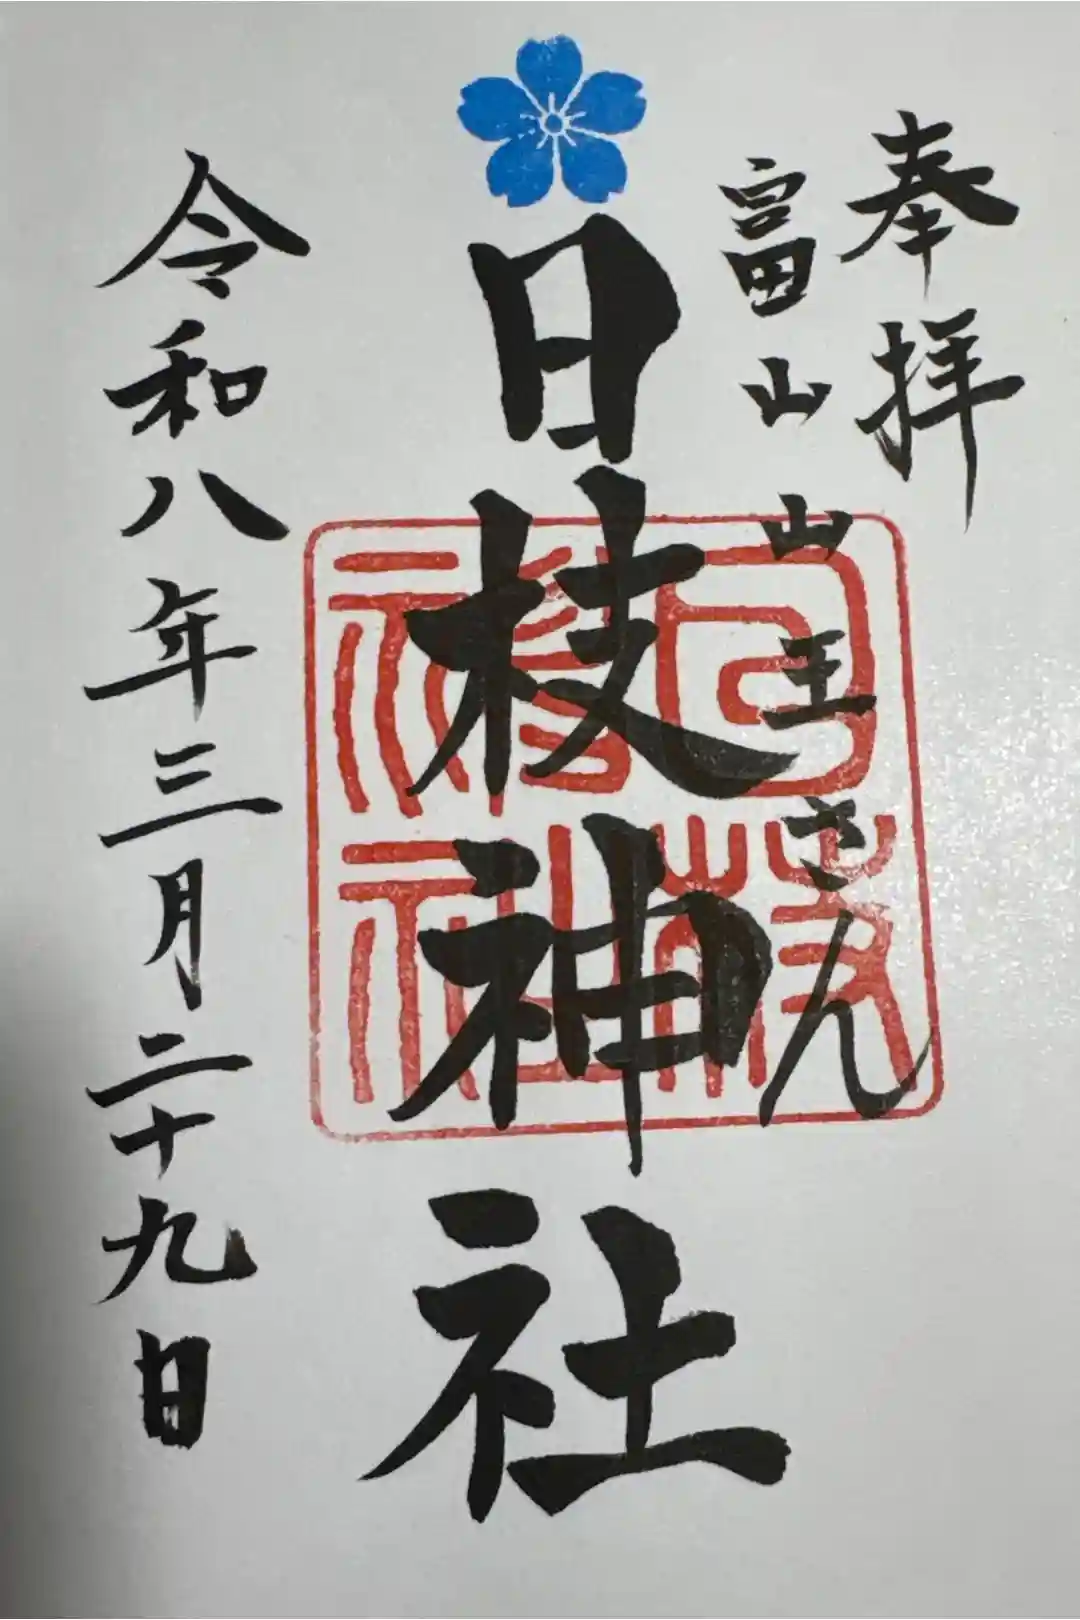 奉拝
富山山王さん
日枝神社
日枝神社
令和八年三月二十九日